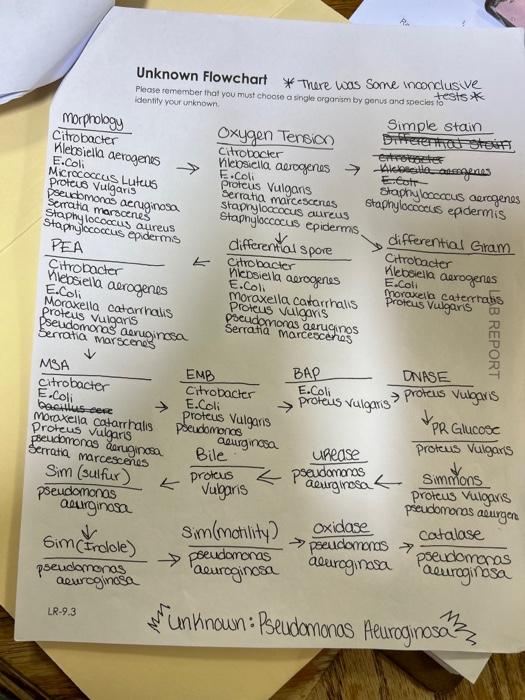 Unknown Flowchart * There was some inconclusive
tests *
Please remember that you must choose a single organism by genus and species to
identify your unknown.
Morphology
Citrobacter
Klebsiella aerogenes
E.Coli
Micrococcus Luteus
Proteus Vulgaris
Pseudomonas aeruginosa
Serratia marscenes
Staphylococcus aureus
Staphylococcus epidermis
Oxygen Tension
Citrobacter
Klebsiella aerogenes
E.Coli
Proteus Vulgaris
Serratia marcescenes
Staphylococcus aureus
Staphylococcus epidermis
Simple stain
Differential stain
Citrobacter
Klebsiella aerogenes
E.Coli
Staphylococcus aerogenes
Staphylococcus epidermis
PEA
Citrobacter
Klebsiella aerogenes
E.Coli
Moraxella catarrhalis
Proteus vulgaris
Pseudomonas aeruginosa
Serratia marscenes
differential spore
Citrobacter
Klebsiella aerogenes
E.Coli
Moraxella catarrhalis
Proteus vulgaris
Pseudomonas aeruginos
Serratia marcescenes
differential Gram
Citrobacter
Klebsiella aerogenes
E.Coli
Moraxella caterrhalis
Proteus Vulgaris
LAB REPORT
MSA
Citrobacter
E.Coli
bacillus cere
Moraxella catarrhalis
Proteus vulgaris
pseudomonas aeruginosa
Serratia marcescenes
EMB
Citrobacter
E.Coli
Proteus Vulgaris
Pseudomonas
aeurginosa
BAP
E.Coli
Proteus vulgaris
DNASE
Proteus vulgaris
PR Glucose
Proteus Vulgaris
Sim (sulfur)
pseudomonas
aeurginosa
Bile
proteus
vulgaris
urease
pseudomonas
aeurginosa
Simmons
proteus vulgaris
pseudomonas aeurgen
Sim (Indole)
pseudomonas
aeuroginosa
Sim (motility)
pseudomonas
aeuroginosa
oxidase
pseudomonas
aeuroginosa
catalase
pseudomonas
aeuroginosa
LR-9.3
Unknown: Pseudomonas Aeuroginosa